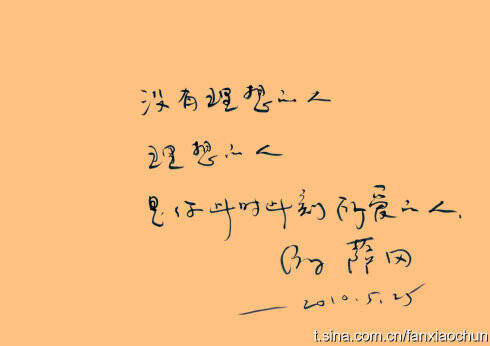 没有理想的人
理想的人
是你此时此刻所爱的人.
By 薛冈
— 2010.5.25
t.sina.com.cn/fanxiaochun